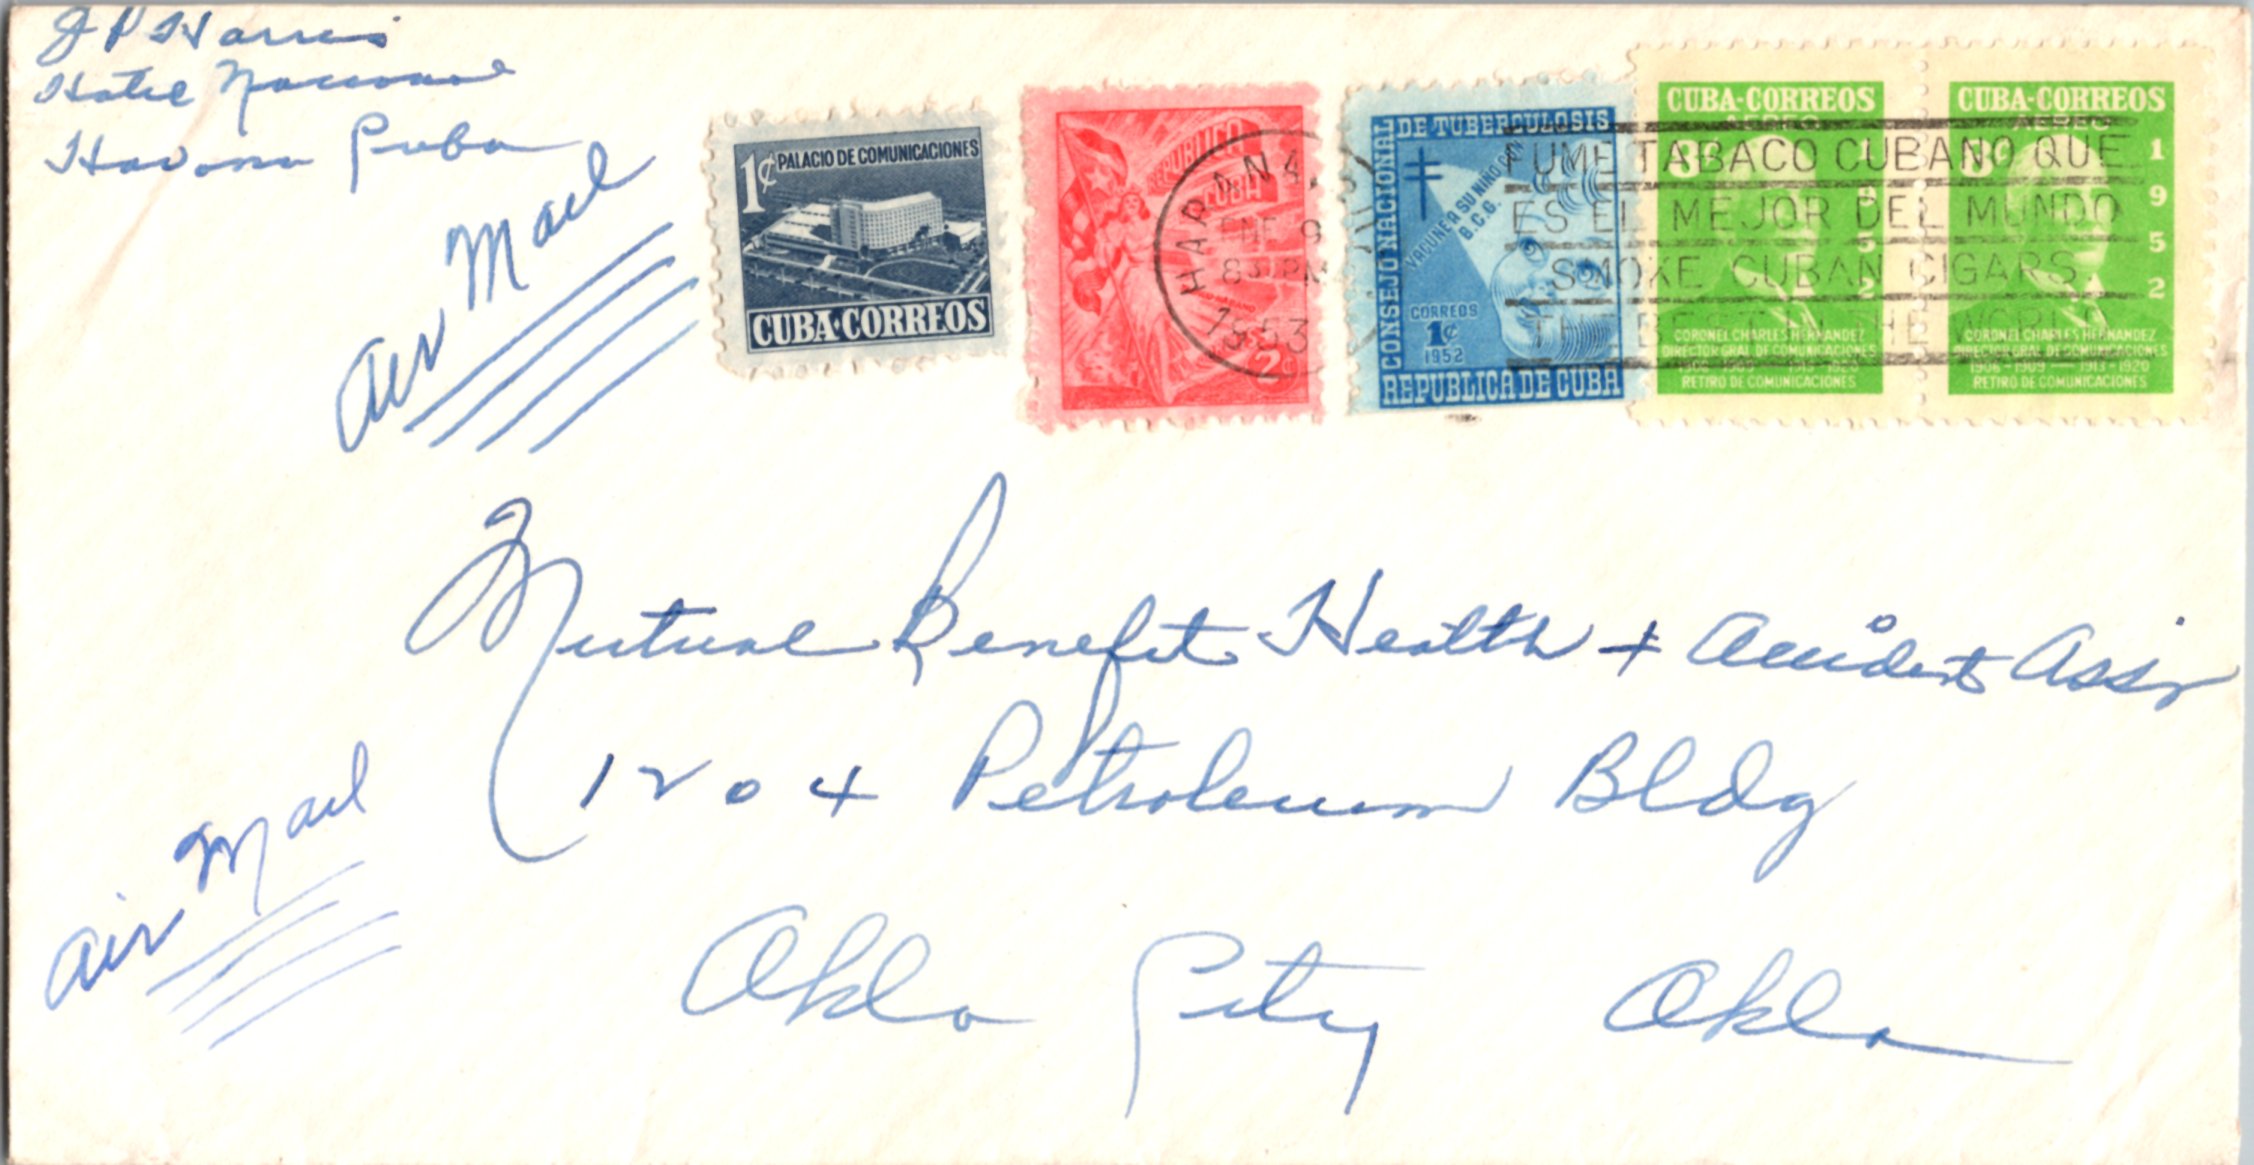 J P Harris
Hotel Nacional
Havana Cuba
Air Mail
1¢ PALACIO DE COMUNICACIONES
CUBA·CORREOS
REPUBLICA
CUBA
2
HABANA
ENE 9
8 PM
1953
CONSEJO NACIONAL DE TUBERCULOSIS
VACUNE A SU NIÑO CON B.C.G.
CORREOS
1¢
1952
REPUBLICA DE CUBA
CUBA-CORREOS
AEREO
8¢
1952
CORONEL CHARLES HERNANDEZ
DIRECTOR GRAL. DE COMUNICACIONES
1906-1909 — 1913-1920
RETIRO DE COMUNICACIONES
CUBA-CORREOS
AEREO
8¢
1952
CORONEL CHARLES HERNANDEZ
DIRECTOR GRAL. DE COMUNICACIONES
1906-1909 — 1913-1920
RETIRO DE COMUNICACIONES
FUME TABACO CUBANO QUE
ES EL MEJOR DEL MUNDO
SMOKE CUBAN CIGARS
THE BEST IN THE WORLD
Mutual Benefit Health + Accident Assn
1204 Petroleum Bldg
Okla City Okla
Air Mail